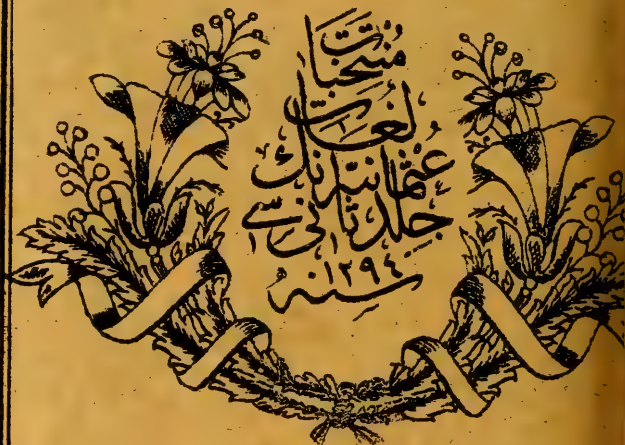 منتخبات
لغات
عثمانیه‌نك
جلد ثانیسی
سنه ١٢٩٤